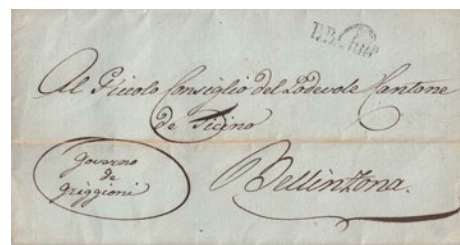 Al Piccolo Consiglio del Lodevole Cantone
de Ticino
Governo
de
Griggioni
Bellinzona.